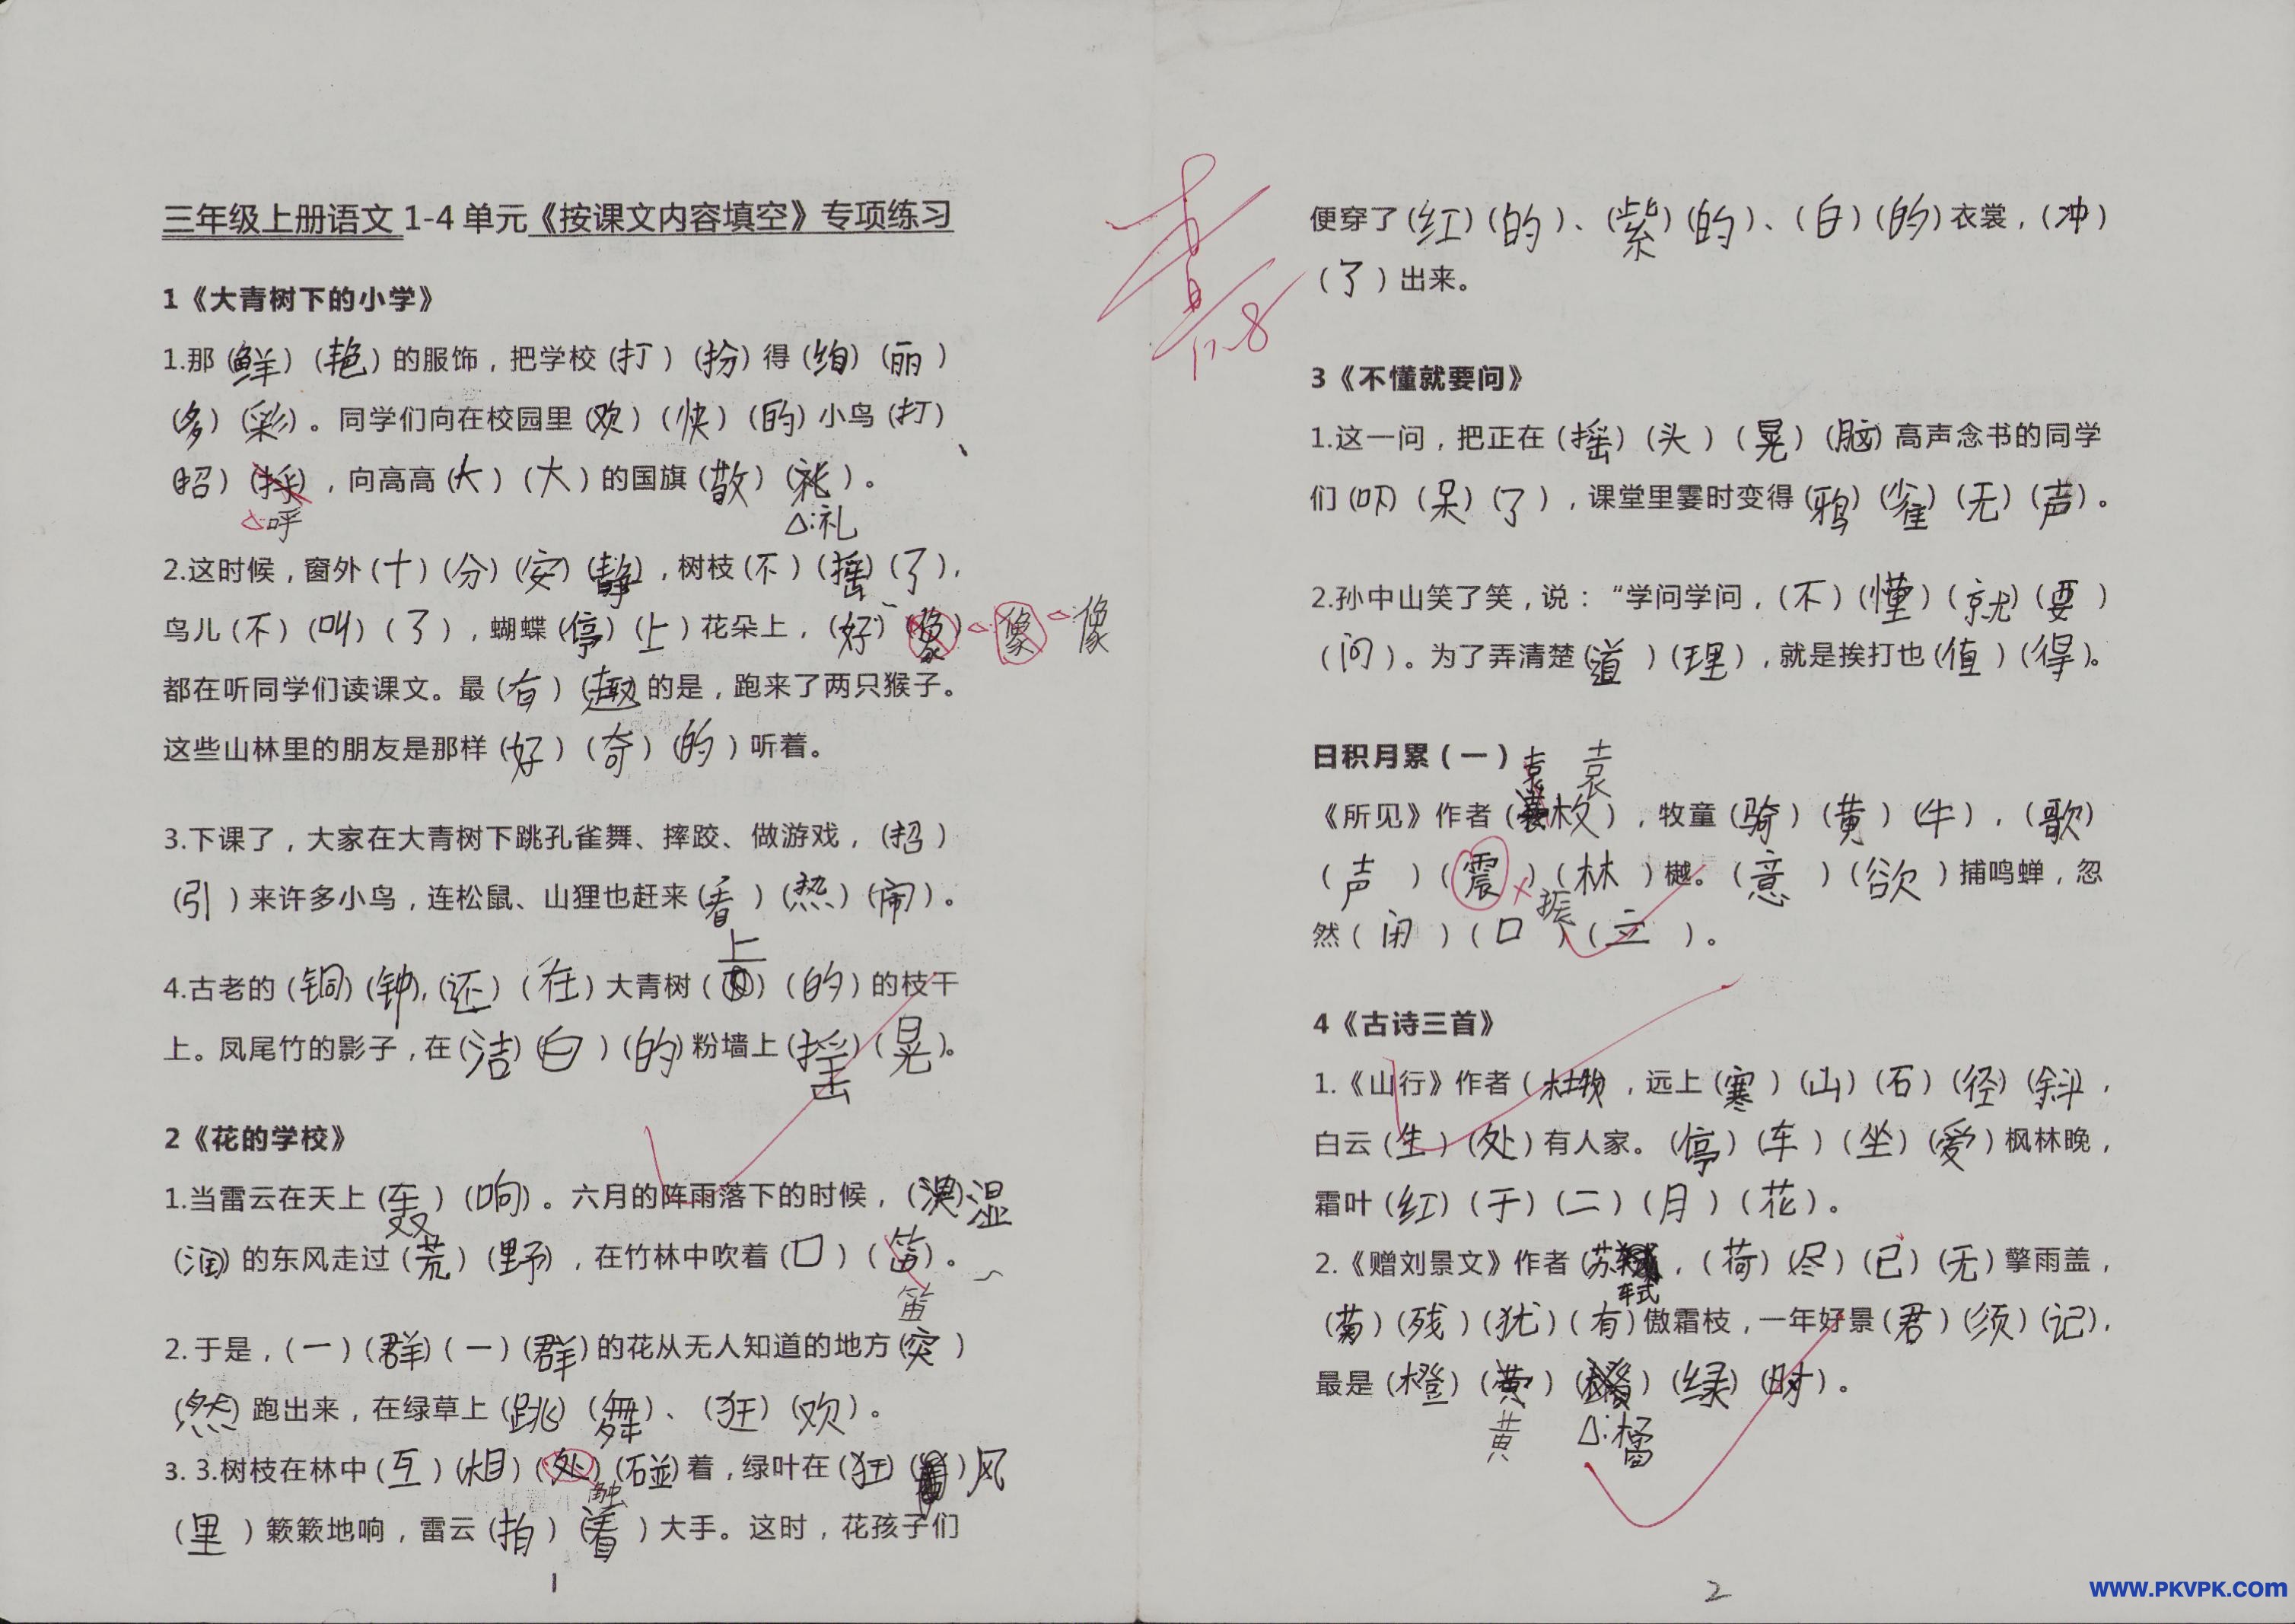 三年级上册语文1-4单元《按课文内容填空》专项练习
1《大青树下的小学》
1.那(鲜)(艳)的服饰，把学校(打)(扮)得(绚)(丽)
(多)(彩)。同学们向在校园里(欢)(快)(的)小鸟(打)
(招)( )，向高高(大)(大)的国旗(敬)( )。
△呼 △:礼
2.这时候，窗外(十)(分)(安)(静)，树枝(不)(摇)(了)，
鸟儿(不)(叫)(了)，蝴蝶(停)(上)花朵上，(好)( ) △ 像 △:像
都在听同学们读课文。最(有)(趣)的是，跑来了两只猴子。
这些山林里的朋友是那样(好)(奇)(的)听着。
3.下课了，大家在大青树下跳孔雀舞、摔跤、做游戏，(招)
(引)来许多小鸟，连松鼠、山狸也赶来(看)(热)(闹)。
上
4.古老的(铜)(钟),(还)(在)大青树( )(的)的枝干
上。凤尾竹的影子，在(洁)(白)(的)粉墙上(摇)(晃)。
2《花的学校》
1.当雷云在天上(轰)(响)。六月的阵雨落下的时候，( )湿
(润)的东风走过(荒)(野)，在竹林中吹着(口)(笛)。
笛
2.于是，(一)(群)(一)(群)的花从无人知道的地方(突)
(然)跑出来，在绿草上(跳)(舞)、(狂)(欢)。
3. 3.树枝在林中(互)(相)(处)(碰)着，绿叶在(狂)( )风
触
(里)簌簌地响，雷云(拍)(着)大手。这时，花孩子们
1
查
11-8
便穿了(红)(的)、(紫)(的)、(白)(的)衣裳，(冲)
(了)出来。
3《不懂就要问》
1.这一问，把正在(摇)(头)(晃)(脑)高声念书的同学
们(吓)(呆)(了)，课堂里霎时变得(鸦)(雀)(无)(声)。
2.孙中山笑了笑，说：“学问学问，(不)(懂)(就)(要)
(问)。为了弄清楚(道)(理)，就是挨打也(值)(得)。
日积月累(一)
袁 袁
《所见》作者( 枚)，牧童(骑)(黄)(牛)，(歌)
(声)(震)(林)樾。(意)(欲)捕鸣蝉，忽
振
然(闭)(口)(立)。
4《古诗三首》
1.《山行》作者(杜牧，远上(寒)(山)(石)(径)(斜，
白云(生)(处)有人家。(停)(车)(坐)(爱)枫林晚，
霜叶(红)(于)(二)(月)(花)。
2.《赠刘景文》作者(苏 ，(荷)(尽)(已)(无)擎雨盖，
轼
(菊)(残)(犹)(有)傲霜枝，一年好景(君)(须)(记)，
最是(橙)(黄)( )(绿)(时)。
黄 △:橘
2
www.PKVPK.com